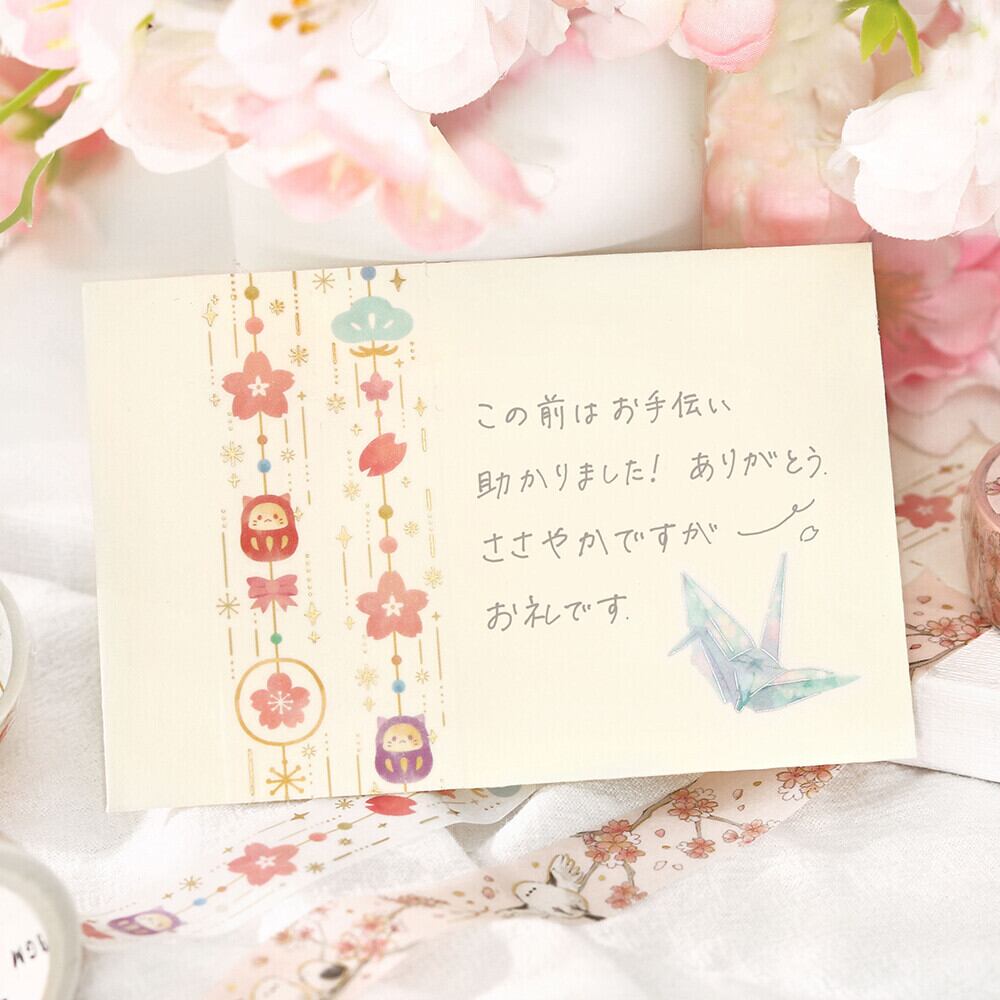 この前はお手伝い
助かりました! ありがとう.
ささやかですが
お礼です.